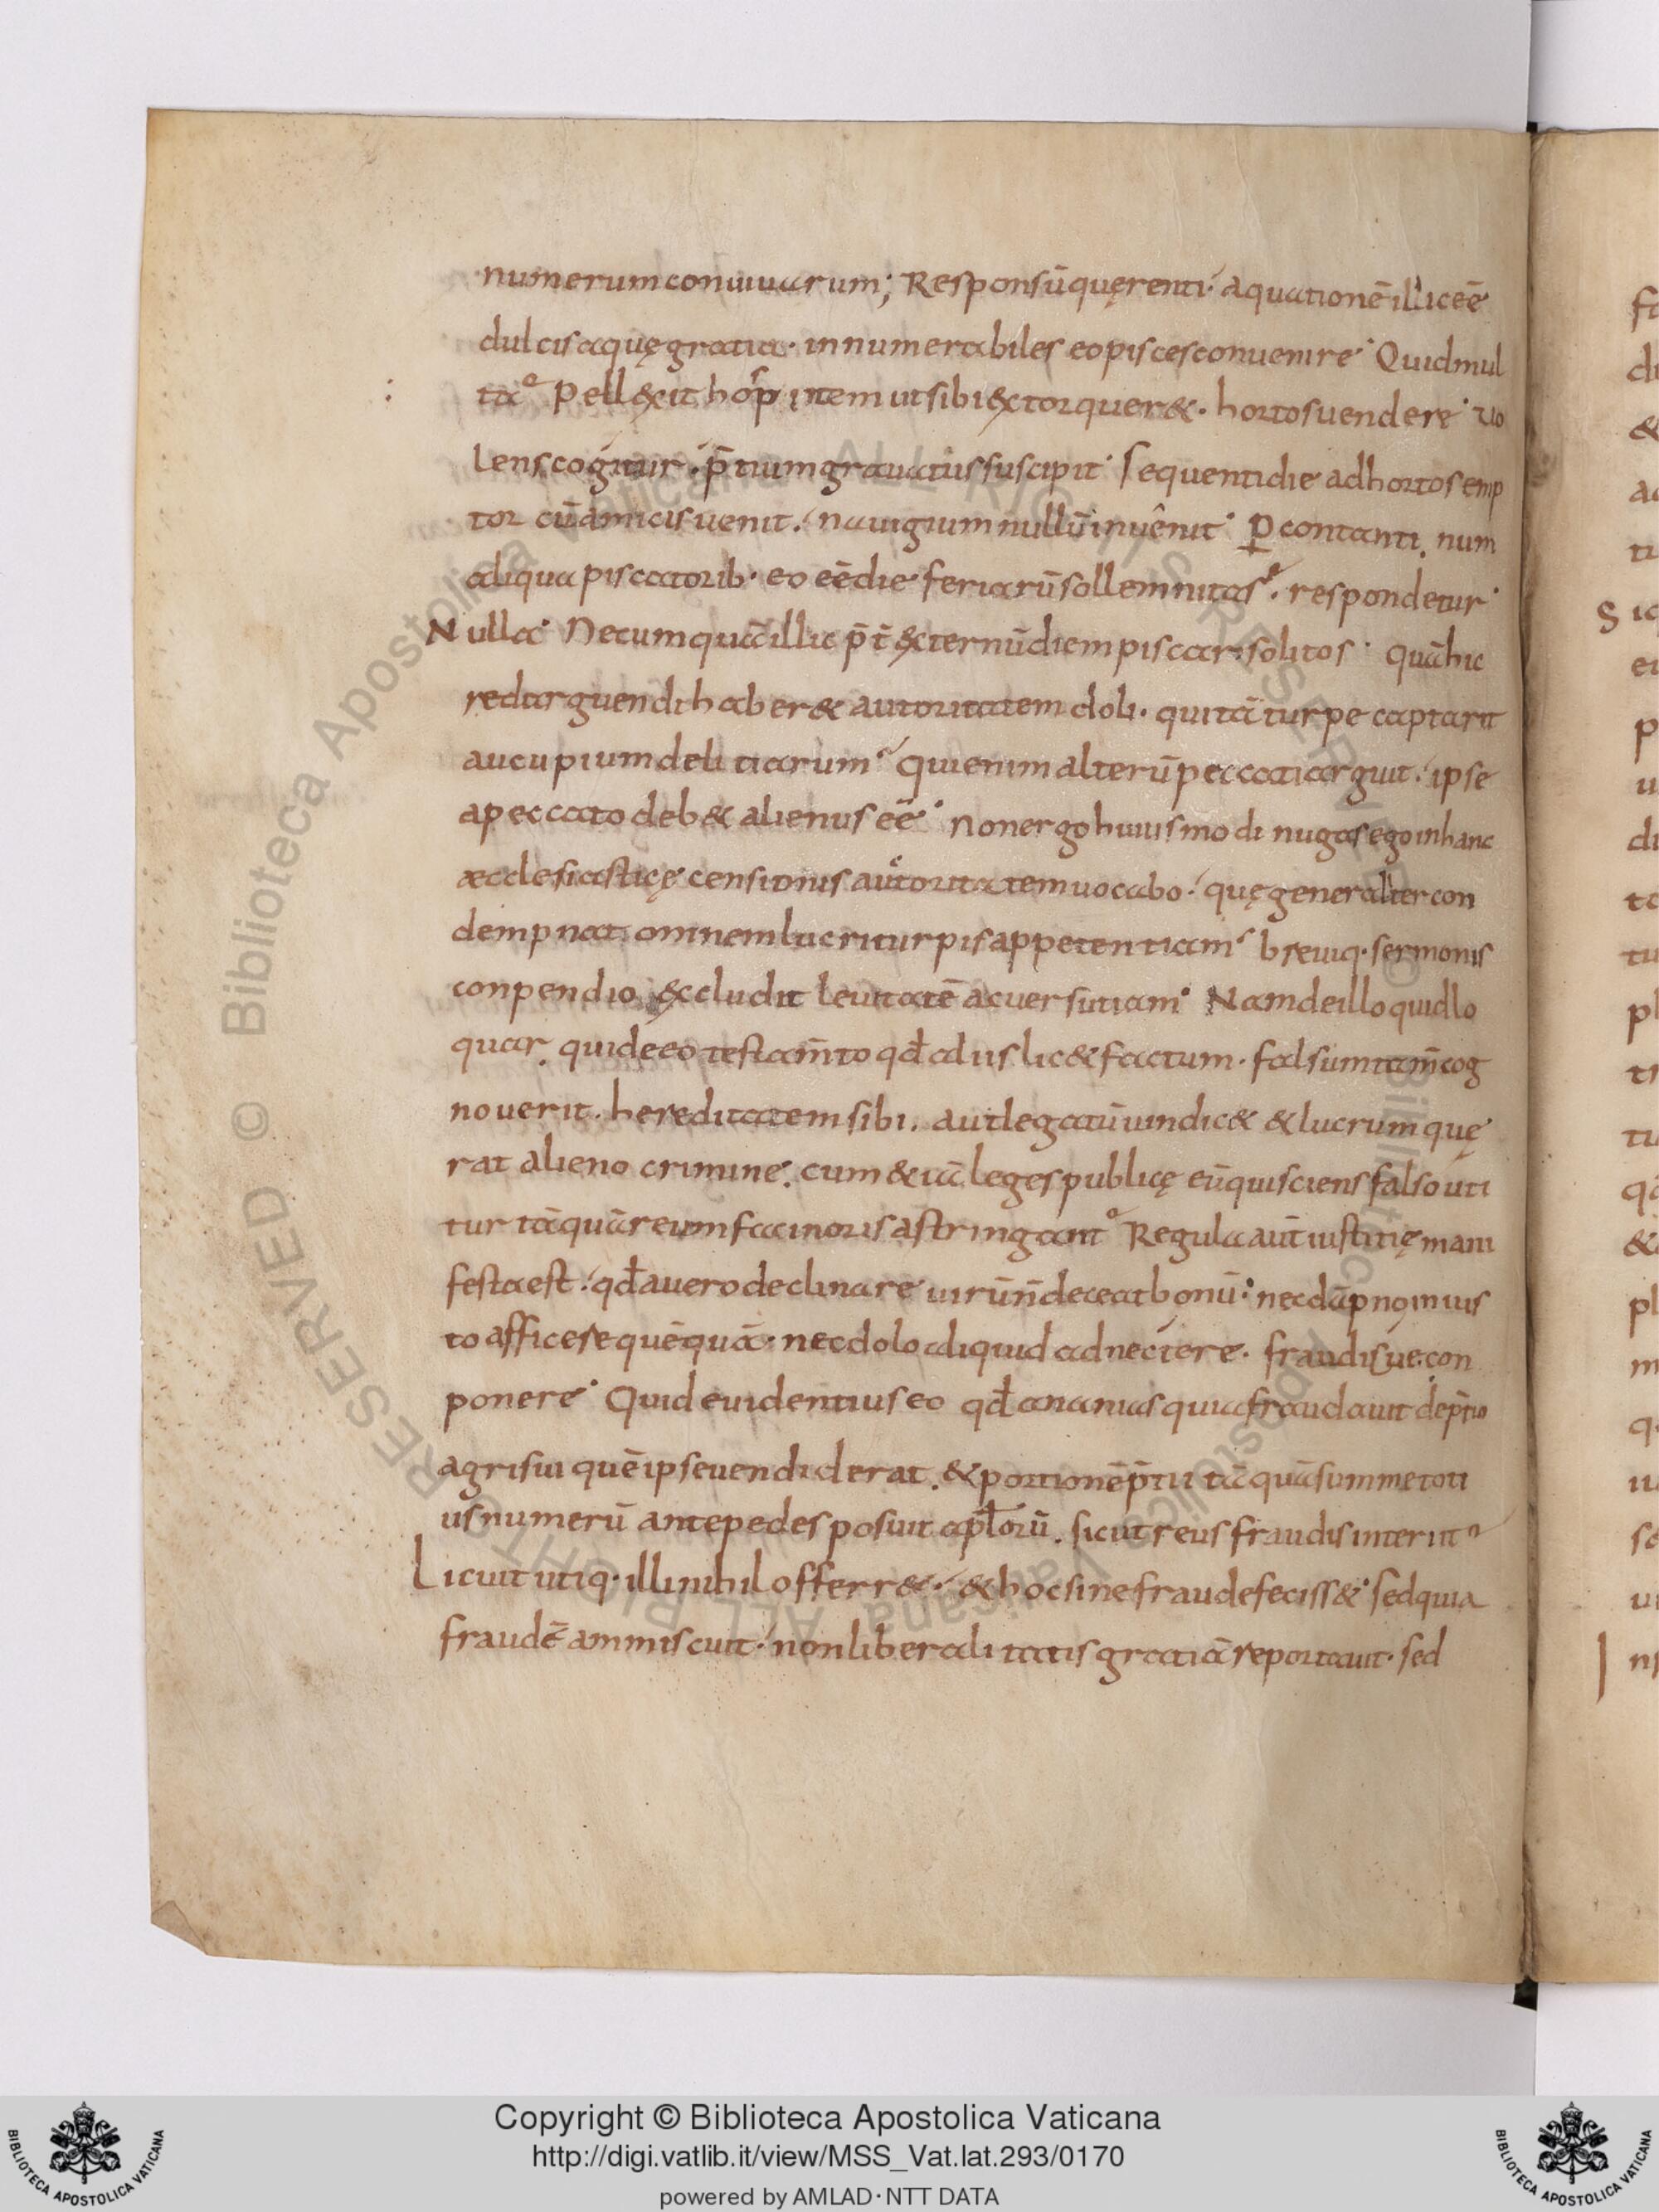 numerum conuiuarum; Responsū quęrenti· aquationē illic eē
dulcis aquę gratia· innumerabiles eo pisces conuenire· Quid mul
ta? Pellexit hospitem ut sibi extorquer&· hortos uendere· Uo
lens cogitur· p̄tium grauatus suscipit· Sequenti die ad hortos emp
tor cū amicis uenit· nauigium nullū inuênit· ꝑcontanti, num
aliqua piscatorib· eo eē die feriarū sollemnitas?· respondetur·
Nulla· Nec umquā illic p̄t externū diem piscari solitos· quā hic
redarguendi haber& autoritatem doli· qui tā turpe captarit
aucupium delitiarum? Qui enim alterū peccati arguit· ipse
a peccato deb& alienus eē· Non ergo huiusmodi nugas ego in hanc
æcclesiasticę censionis auctoritatem uocabo· quę generaliter con
dempnat omnem lucri turpis appetentiam· breuiq· sermonis
conpendio excludit leuitatē ac uersutiam· Nam de illo quid lo
quar, qui de eo testam̄to qd̄ ad us lic& factum· falsum tam̄ cog
nouerit· hereditatem sibi, aut legatū uindic& & lucrum quę
rat alieno crimine, cum & iā leges publicę eū qui sciens falso uti
tur tāquā reum facinoris astringant? Regula aūt iustitię mani
festa est· qd̄ a uero declinare uirū n̄ deceat bonū· nec dāpno iniusto
to afficere quēquā· nec dolo aliquid adnectere· fraudisue con
ponere· Quid euidentius eo qd̄ ananias qui a fraudauit de p̄tio
agri sui quē ipse uendiderat, & portionē p̄tii tāquā summe toti
us numerū ante pedes posuit apl̄orū, sicut reus fraudis interiit?
Licuit utiq· illi nihil offerr&· & hoc sine fraude feciss&· sed quia
fraudē ammiscuit· non liberalitatis gratiā reportauit· sed
Copyright © Biblioteca Apostolica Vaticana
http://digi.vatlib.it/view/MSS_Vat.lat.293/0170
powered by AMLAD·NTT DATA
BIBLIOTECA APOSTOLICA VATICANA
BIBLIOTECA APOSTOLICA VATICANA